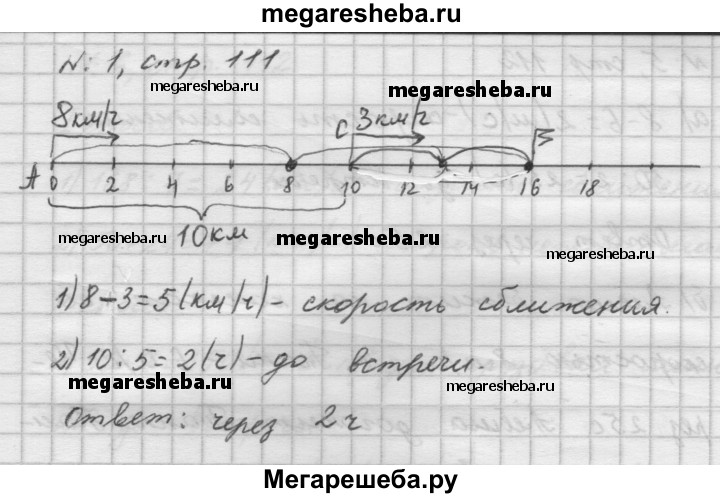 megaresheba.ru
N: 1, стр. 111
megaresheba.ru
megaresheba.ru
8км/ч C 3км/ч B
A 0 2 4 6 8 10 12 14 16 18
10км
megaresheba.ru
megaresheba.ru
megaresheba.ru
1) 8-3=5(км/ч)- скорость сближения.
2) 10:5=2(ч)-до встречи.
megaresheba.ru
megaresheba.ru
Ответ: через 2ч
Мегарешеба.ру